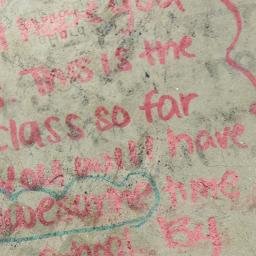 I hope you
This is the
class so far
you will have
awesome time
By